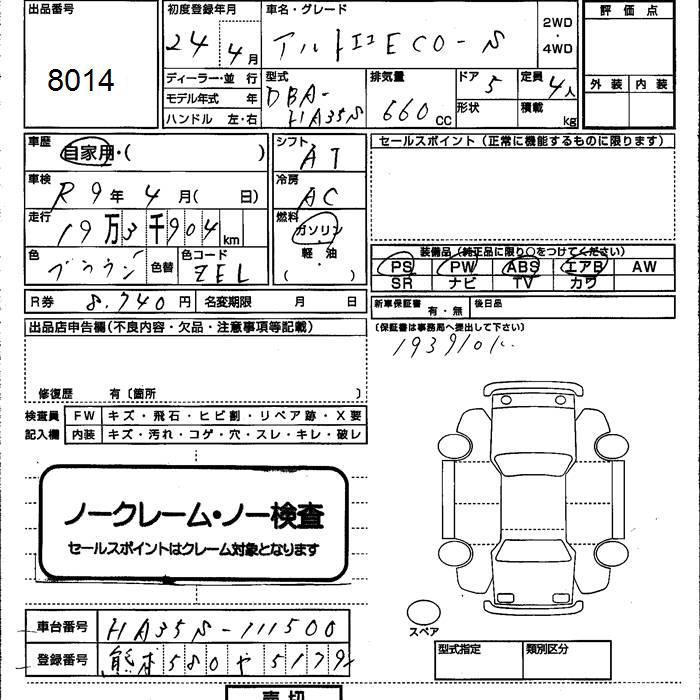 出品番号
8014
初度登録年月
24 4月
車名・グレード
アルトエコ ECO-S
2WD・4WD
評価点
外装 内装
ディーラー・並行
モデル年式 年
ハンドル 左・右
型式
DBA-
HA35S
排気量
660 cc
ドア 5
形状
定員 4人
積載 kg
車歴
自家用・( )
車検
R9年 4月( 日)
走行
19万3千904 km
色
ブラウン
色替
色コード
ZEL
シフト
AT
冷房
AC
燃料
ガソリン
軽・油
( )
セールスポイント(正常に機能するものに限ります)
装備品(純正品に限り○をつけてください)
PS PW ABS エアB AW
SR ナビ TV カワ
R券 8.740円
名変期限 月 日
新車保証書 有・無
後日品
(保証書は事務局へ提出して下さい)
出品店申告欄(不良内容・欠品・注意事項等記載)
修復歴 有〔箇所 〕
検査員記入欄
FW キズ・飛石・ヒビ割・リペア跡・X要
内装 キズ・汚れ・コゲ・穴・スレ・キレ・破レ
ノークレーム・ノー検査
セールスポイントはクレーム対象となります
スペア
車台番号 HA35S-111500
登録番号 熊本580や5179
型式指定 類別区分
売切